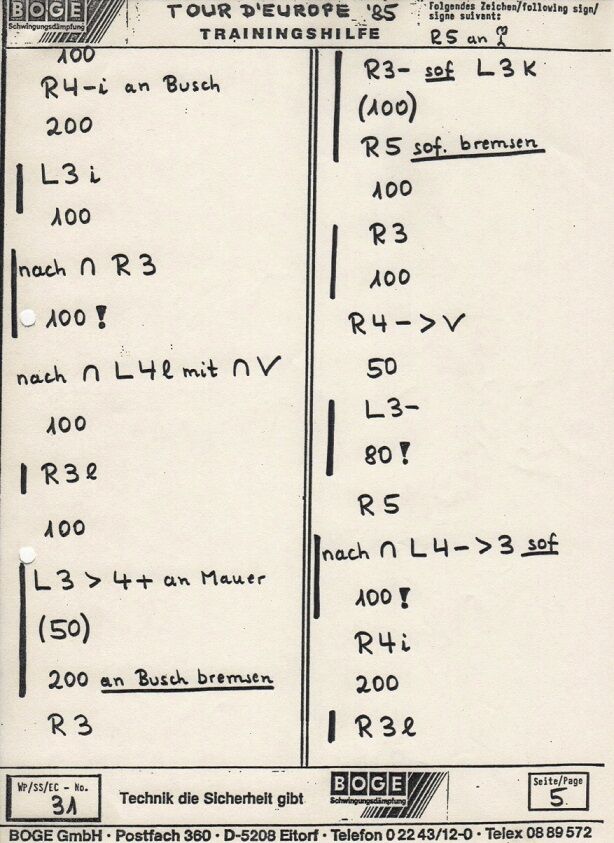 BOGE
Schwingungsdämpfung
TOUR D'EUROPE '85
TRAININGSHILFE
Folgendes Zeichen/following sign/
signe suivant:
R5 an
100
R4-i an Busch
200
L3 i
100
nach ∩ R3
100!
nach ∩ L4l mit ∩ V
100
R3l
100
L3 > 4+ an Mauer
(50)
200 an Busch bremsen
R3
R3- sof L3K
(100)
R5 sof. bremsen
100
R3
100
R4->V
50
L3-
80!
R5
nach ∩ L4->3 sof
100!
R4i
200
R3l
WP/SS/EC - No.
31
Technik die Sicherheit gibt
BOGE
Schwingungsdämpfung
Seite/Page
5
BOGE GmbH · Postfach 360 · D-5208 Eitorf · Telefon 0 22 43/12-0 · Telex 08 89 572